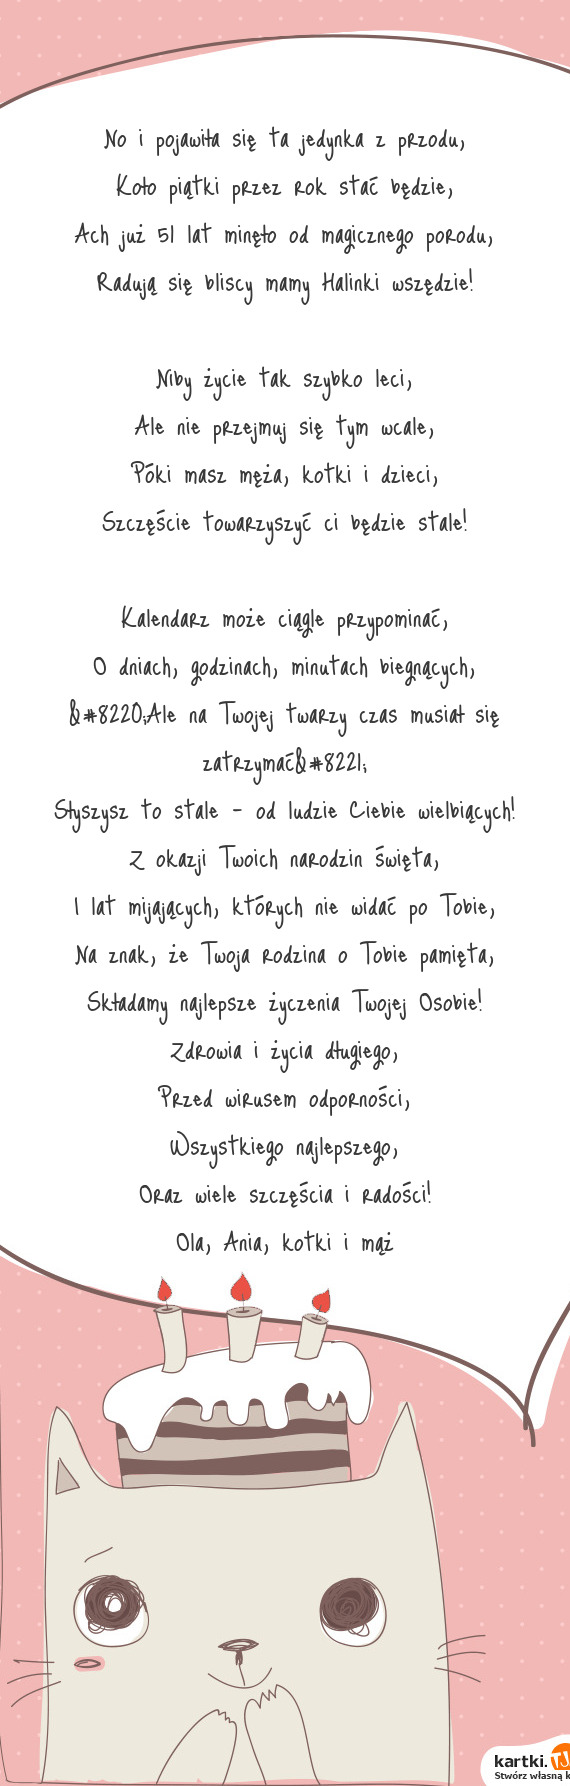 No i pojawiła się ta jedynka z przodu,
Koło piątki przez rok stać będzie,
Ach już 51 lat minęło od magicznego porodu,
Radują się bliscy mamy Halinki wszędzie!
Niby życie tak szybko leci,
Ale nie przejmuj się tym wcale,
Póki masz męża, kotki i dzieci,
Szczęście towarzyszyć ci będzie stale!
Kalendarz może ciągle przypominać,
O dniach, godzinach, minutach biegnących,
&#8220;Ale na Twojej twarzy czas musiał się
zatrzymać&#8221;
Słyszysz to stale - od ludzie Ciebie wielbiących!
Z okazji Twoich narodzin święta,
1 lat mijających, których nie widać po Tobie,
Na znak, że Twoja rodzina o Tobie pamięta,
Składamy najlepsze życzenia Twojej Osobie!
Zdrowia i życia długiego,
Przed wirusem odporności,
Wszystkiego najlepszego,
Oraz wiele szczęścia i radości!
Ola, Ania, kotki i mąż
kartki.TJ
Stwórz własną k